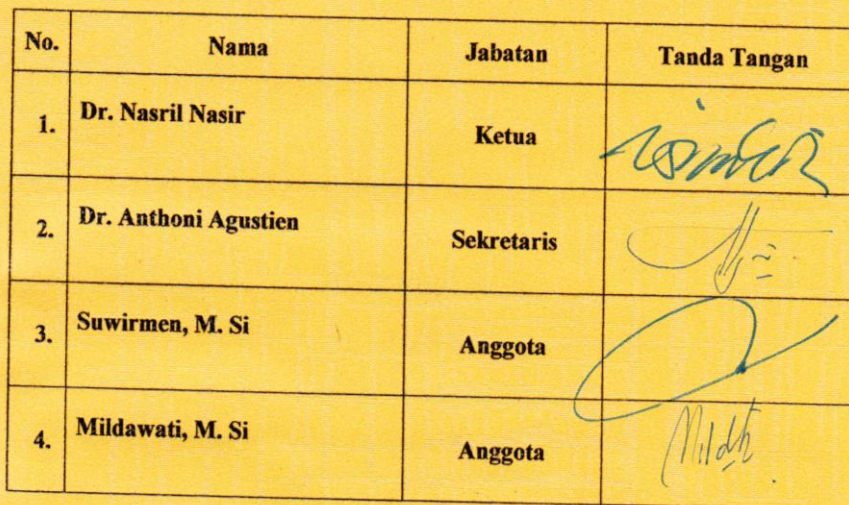 No. Nama Jabatan Tanda Tangan
1. Dr. Nasril Nasir Ketua
2. Dr. Anthoni Agustien Sekretaris
3. Suwirmen, M. Si Anggota
4. Mildawati, M. Si Anggota